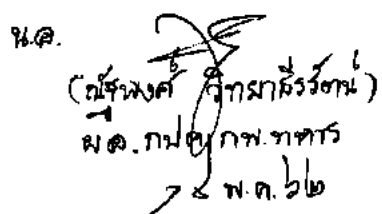 น.อ.
(ณัฐพงศ์ วิทยาธีรรัตน์)
ผอ.กปค.กพ.ทหาร
พ.ค.๖๒